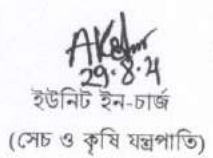 29.8.21
ইউনিট ইন-চার্জ
(সেচ ও কৃষি যন্ত্রপাতি)